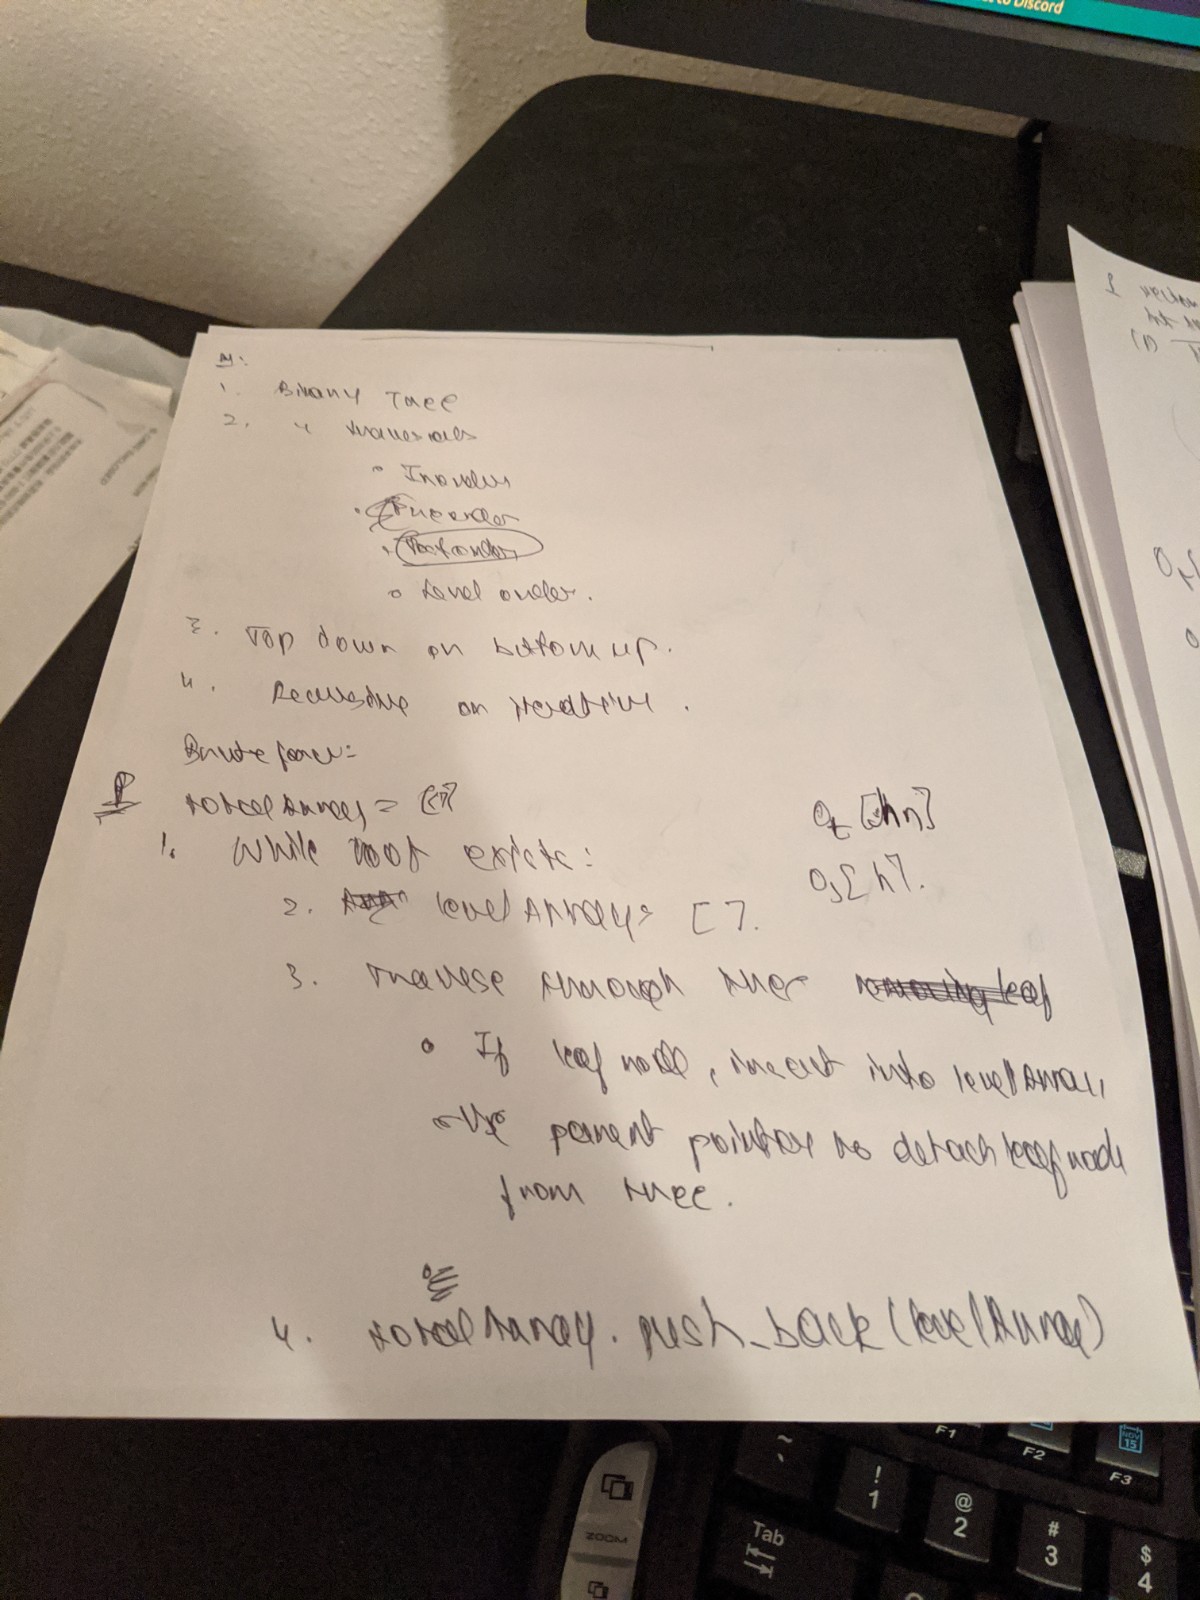 to Discord
M:
1. Binary Tree
2. " traversals
Inorder
Preorder
Postorder
Level order.
3. Top down or bottom up.
4. Recursive or iterative.
Brute force:
P totalArray = [[]]
1. While root exists:
Ot [hn]
2. levelArray = [].
Os[h].
3. Traverse through tree removing leaf
If leaf node, insert into levelArray,
Use parent pointer to detach leaf node
from tree.
4. totalArray.push_back(levelArray)
F1 F2 NOV 15 F3
~ ! 1 @ 2 # 3 $ 4
ZOOM
Tab